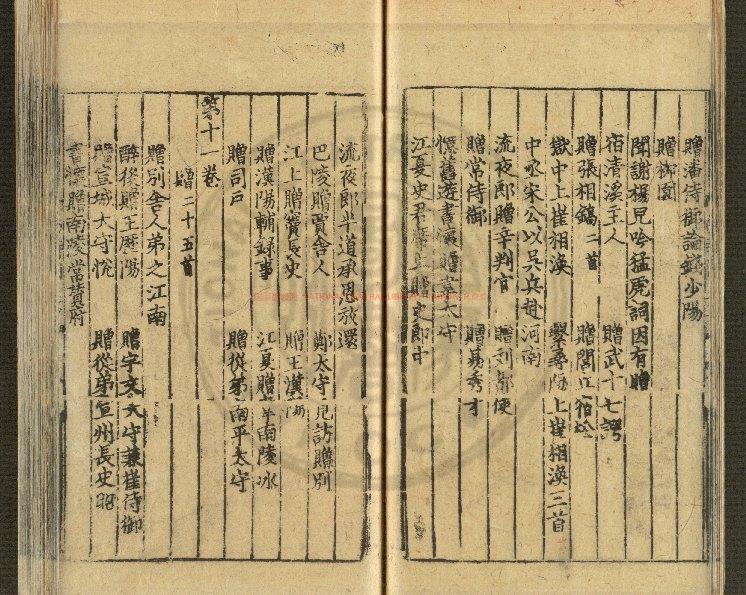 贈潘侍御論錢少陽
贈柳圓
聞謝楊兒吟猛虎詞因有贈
宿清溪主人 贈武十七諤
贈張相鎬二首 贈閭丘宿松
獄中上崔相渙 繫尋陽上崔相渙三首
中丞宋公以吳兵赴河南
流夜郎贈辛判官 贈劉都使
贈常侍御 贈易秀才
憶舊遊書懷贈韋太守
江夏史君席上贈史郎中
流夜郎半道承恩放還
巴陵贈賈舍人 鄭太守見訪贈別
江上贈竇長史 贈王漢陽
贈漢陽輔録事 江夏贈韋南陵冰
贈司戶 贈從弟南平太守
第十一卷
贈二十五首
贈別舍人弟之江南
醉後贈王歷陽 贈宇文太守兼崔侍御
贈宣城太守悅 贈從弟宣州長史昭
書懷贈南陵常贊府